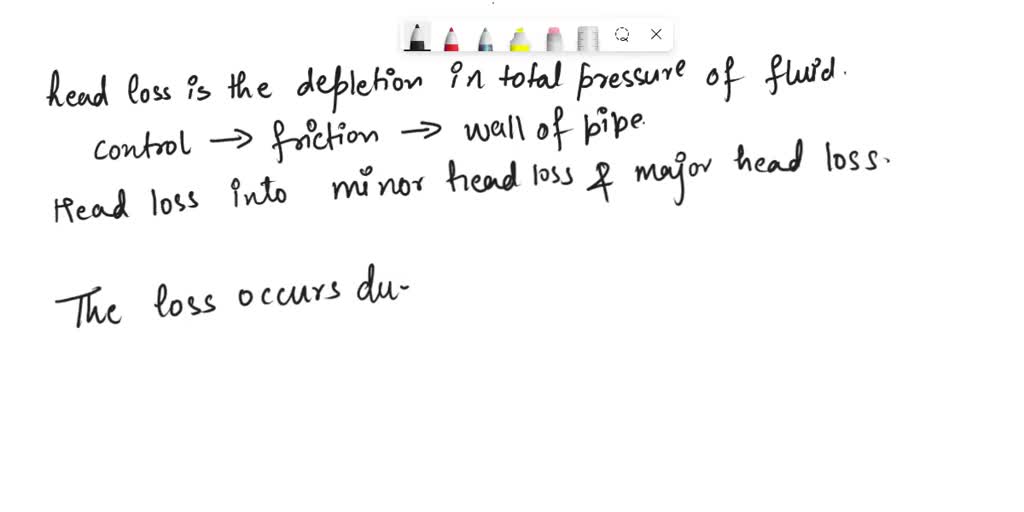 head loss is the depletion in total pressure of fluid.
control → friction → wall of pipe.
Head loss into minor head loss & major head loss.
The loss occurs du-